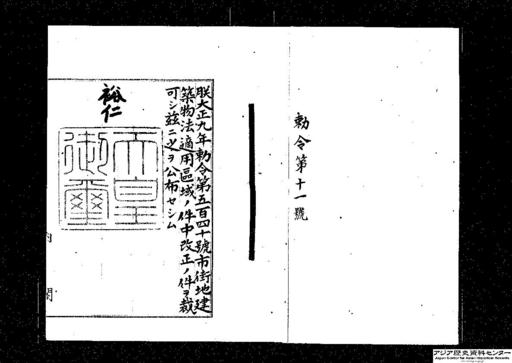 勅令第十一號
朕大正九年勅令第五百四十號市街地建
築物法適用區域ノ件中改正ノ件ヲ裁
可シ茲ニ之ヲ公布セシム
裕仁
天皇
御璽
内閣
アジア歴史資料センター
Japan Center for Asian Historical Records